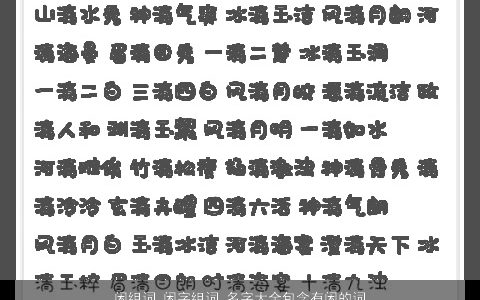 山清水秀 神清气爽 冰清玉洁 风清月朗 河
清海晏 眉清目秀 一清二楚 冰清玉润
一清二白 三清四白 风清月皎 源清流洁 政
清人和 渊清玉絜 风清月明 一清如水
河清难俟 竹清松瘦 扬清激浊 神清骨秀 清
清泠泠 玄清卉醴 四清六活 神清气朗
风清月白 玉清冰洁 河清海宴 澄清天下 冰
清玉粹 眉清目朗 时清海宴 十清九浊
闲组词 闲字组词 名字大全包含有闲的词